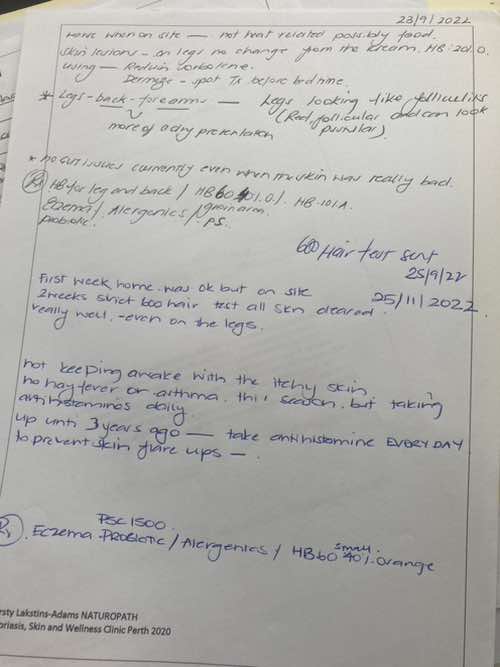 23/9/2022
worse when on site — not heat related possibly food.
Skin lesions - on legs no change from the kream. HB:201.0.
using —
Dermeze - spot Tx before bedtime.
* Legs - back - forearms — Legs looking like folliculitis
(Red, follicular and can look
more of a dry presentation pustular)
* no gut issues currently even when the skin was really bad.
Rx HB for leg and back / HB60 401.0./ HB-101A.
Eczema/. Alergenics / groin area.
probiotic. PS.
600 Hair test sent
25/9/22
First week, home was ok but on site 25/11/2022
2weeks strict 600 hair test all skin cleared.
really well, -even on the legs.
not keeping awake with the itchy skin
no hayfever or asthma this season, but taking
antihistamines daily
up until 3 years ago — take antihistamine EVERYDAY
to prevent skin flare ups — .
PSC1500.
Rx. Eczema PROBIOTIC / Alergenics / HB60 small 40%. Orange
rsty Lakstins-Adams NATUROPATH
oriasis, Skin and Wellness Clinic Perth 2020